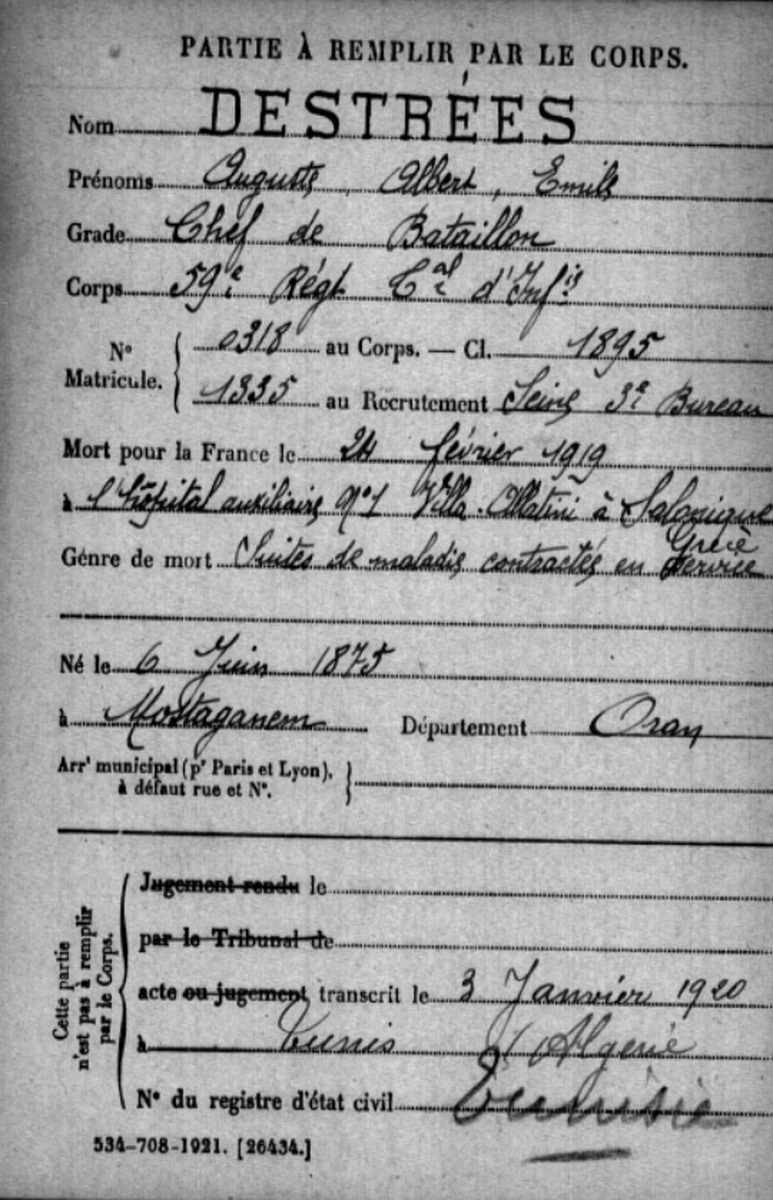 PARTIE À REMPLIR PAR LE CORPS.
Nom DESTRÉES
Prénoms Auguste, Albert, Emile
Grade Chef de Bataillon
Corps 59e Régt Cal d'Infie
No Matricule. { 0318 au Corps. — Cl. 1895
1335 au Recrutement Seine 3e Bureau
Mort pour la France le 24 février 1919
à l'hôpital auxiliaire No 1 Villa Allatini à Salonique
Grèce
Genre de mort Suites de maladie contractée en service
Né le 6 Juin 1875
à Mostaganem Département Oran
Arrt municipal (pr Paris et Lyon),
à défaut rue et No.
Cette partie
n'est pas à remplir
par le Corps.
Jugement rendu le
par le Tribunal de
acte ou jugement transcrit le 3 Janvier 1920
à Tunis (Algérie
No du registre d'état civil Tunisie
534-708-1921. [26434.]